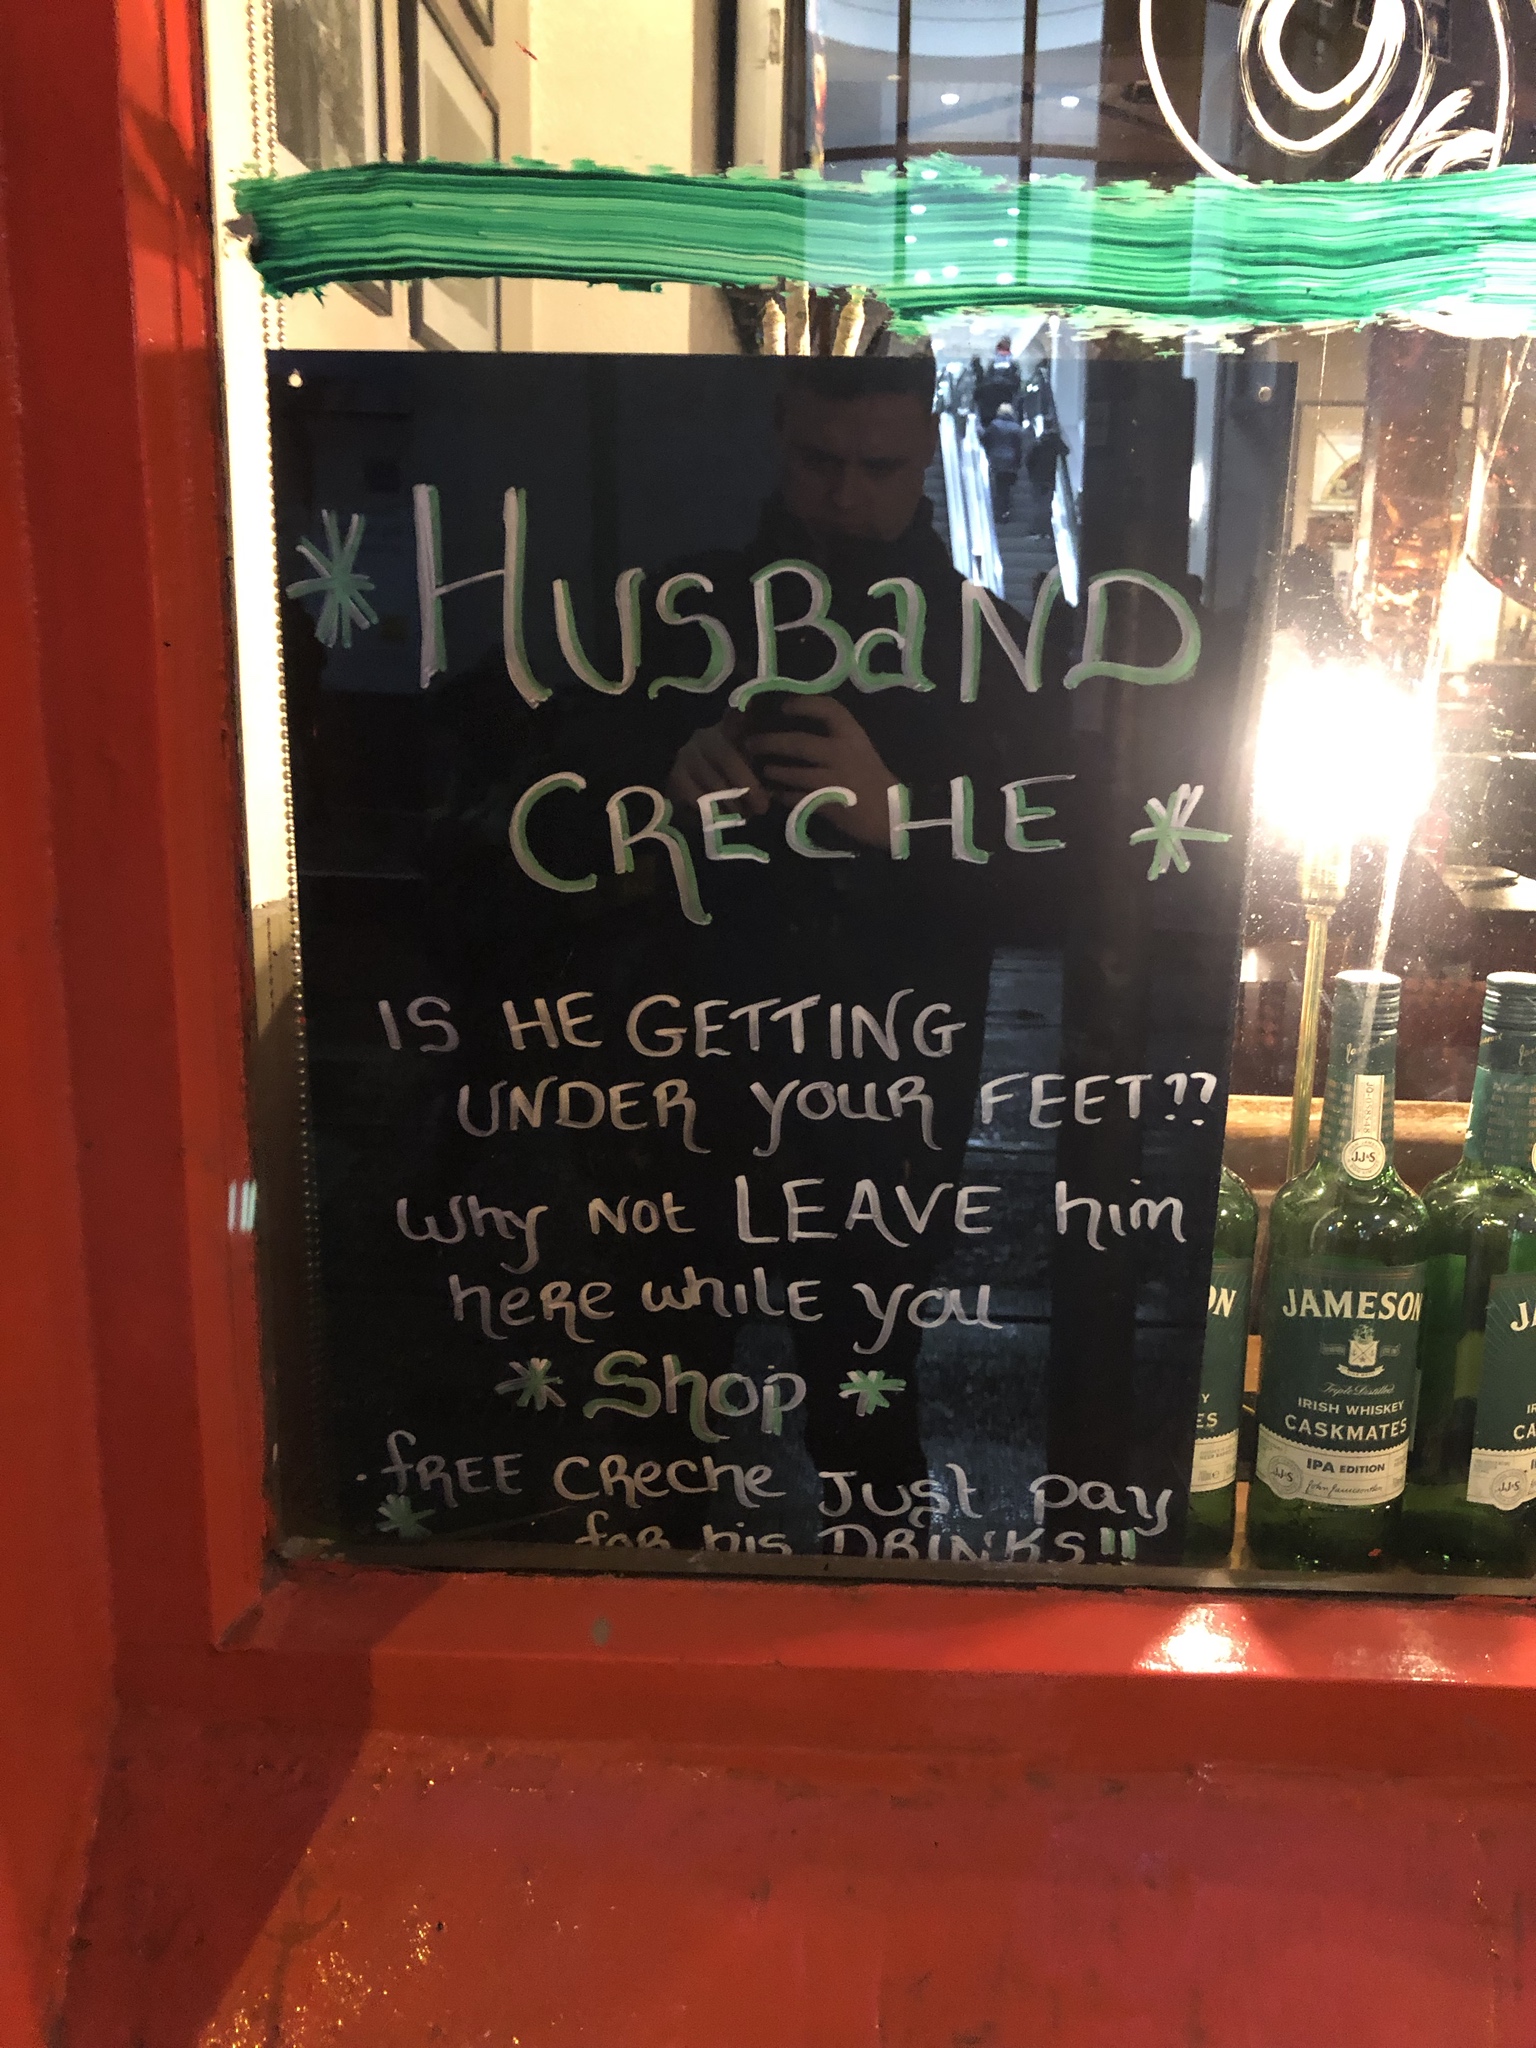 *HUSBAND
CRECHE*
IS HE GETTING
UNDER YOUR FEET??
Why NOT LEAVE him
here while you
*Shop*
.FREE CRECHE JUST PAY
FOR his DRINKS!!
JJ&S
JAMESON
Triple Distilled
IRISH WHISKEY
CASKMATES
IPA EDITION
JJ&S
ON
Y
ES
J
IR
CA
JJ&S